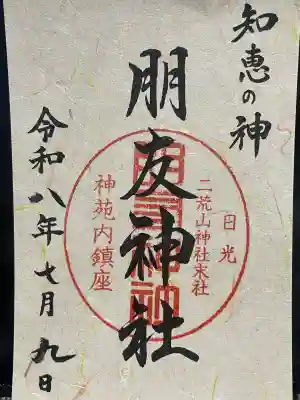 知恵の神
朋友神社
日光
二荒山神社末社
神苑内鎮座
令和八年七月九日